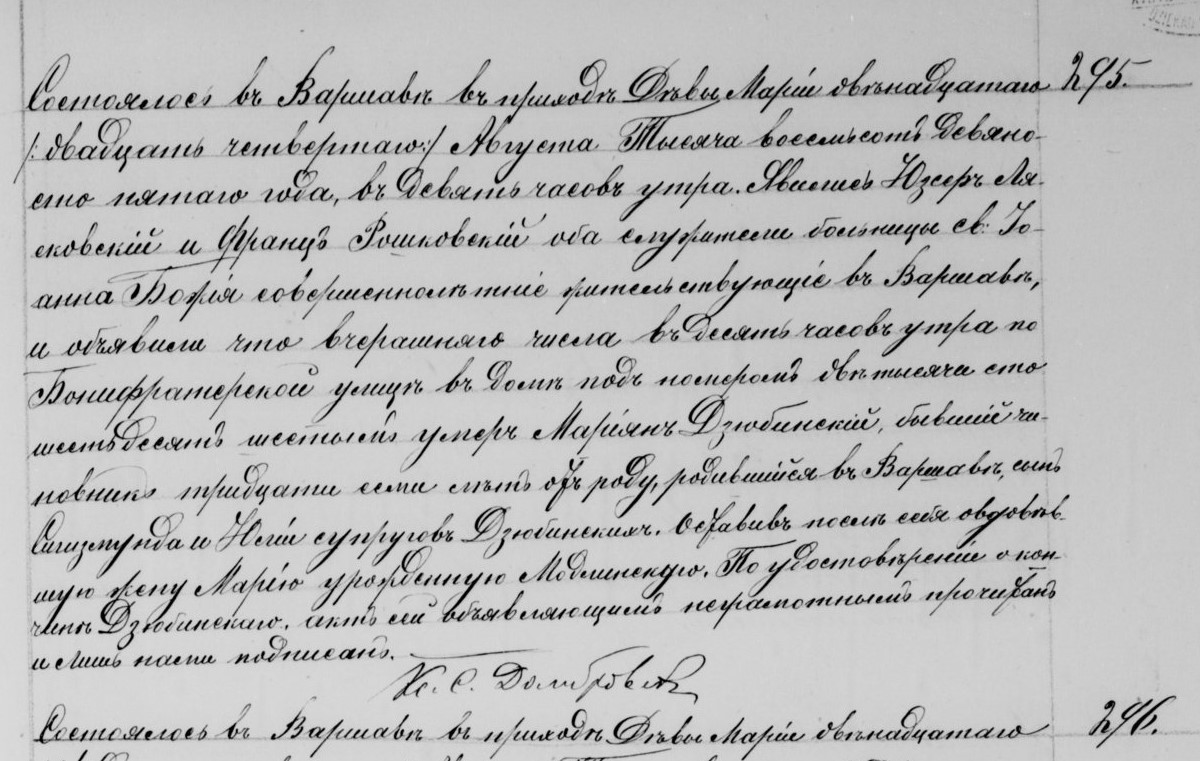 Состоялось въ Варшавѣ въ приходѣ Дѣвы Маріи двѣнадцатаго 295.
/:двадцать четвертаго:/ Августа Тысяча восемьсотъ девяно-
сто пятаго года, въ девять часовъ утра. Явились Юзефъ Ля-
сковскій и Францъ Рошковскій оба служители больницы св: Іо-
анна Божія совершеннолѣтніе жительствующіе въ Варшавѣ,
и объявили что вчерашняго числа въ десять часовъ утра по
Бонифратерской улицѣ въ домѣ подъ номеромъ двѣ тысячи сто
шестьдесятъ шестымъ умеръ Маріянъ Дзюбинскій, бывшій чи-
новникъ тридцати семи лѣтъ отъ роду, родившійся въ Варшавѣ, сынъ
Сигизмунда и Юліи супруговъ Дзюбинскихъ. Оставивъ послѣ себя овдовѣв-
шую жену Марію урожденную Модлинскую. По удостовѣреніе о кон-
чинѣ Дзюбинскаго, актъ сей объявляющимъ неграмотнымъ прочитанъ
и лишь нами подписанъ.
Кс. С. Домбровскі
Состоялось въ Варшавѣ въ приходѣ Дѣвы Маріи двѣнадцатаго 296.